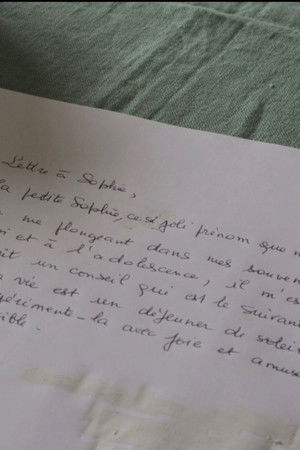 Lettre à Sophie,
la petite Sophie, ce si joli prénom que
me plongeant dans mes souven
et à l'adolescence, il m'es
it un conseil qui est le suivant
a vie est un déjeuner de soleil
périmente-la avec joie et amuse
ible.